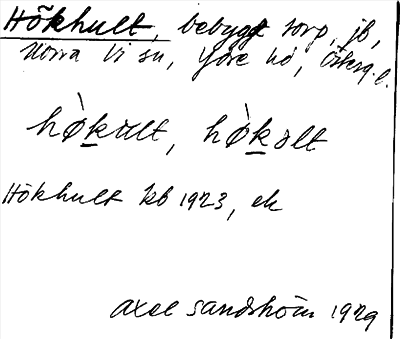 Hökhult, bebyggt torp, jb,
Norra Vi sn, Ydre hd, Österg. l.
hø̀kult, hø̀kəlt
Hökhult kb 1923, ek
Axel Sandström 1929